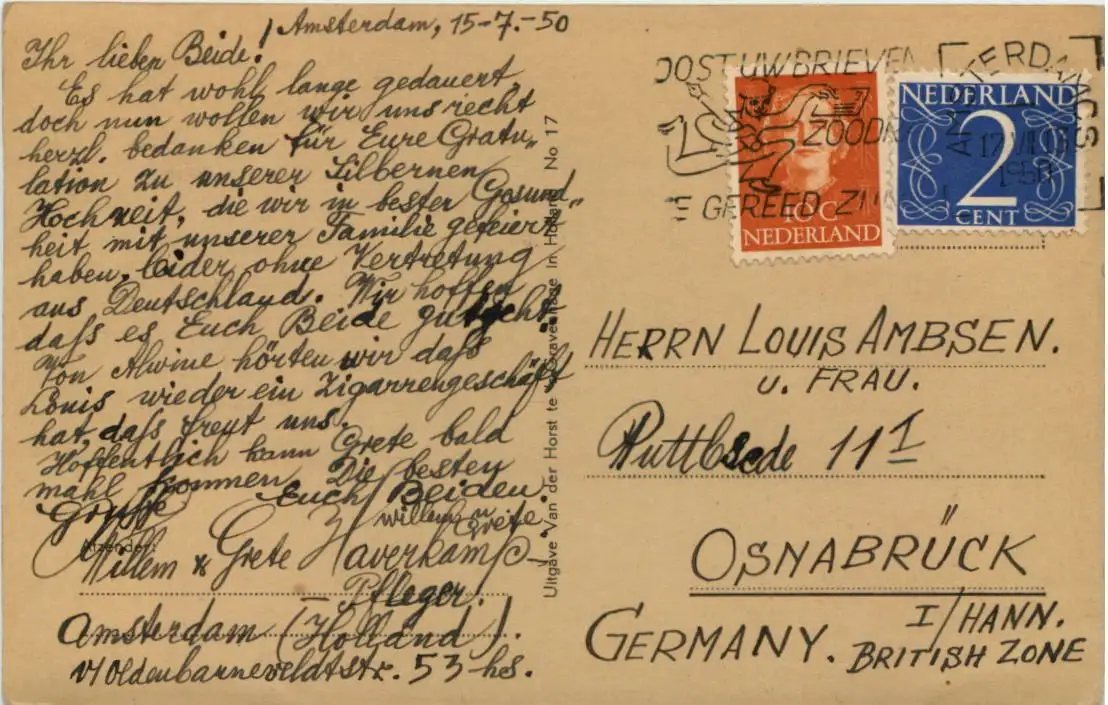 Amsterdam, 15-7.-50
Ihr lieben Beide!
Es hat wohl lange gedauert
doch nun wollen wir uns recht
herzl. bedanken für Eure Gratu„
lation zu unserer Silbernen
Hochzeit, die wir in bester Gesund„
heit mit unserer Familie gefeiert
haben, leider ohne Vertretung
aus Deutschland. Wir hoffen
daß es Euch Beide gut geht
Von Alwine hörten wir daß
Louis wieder ein Zigarrengeschäft
hat, daß freut uns.
Hoffentlich kann Grete bald
mahl kommen. Die besten
Grüße Euch Beiden.
Willem u Grete.
Afzender:
Willem & Grete Haverkamp-
Pfleger.
Amsterdam (Holland).
v/Oldenbarneveldtstr. 53-hs.
Uitgave Van der Horst te 's-Gravenhage in Holland No 17
OOST UW BRIEVEN
ZOODR
E GEREED ZIJN
AMSTERDAM CS
17 VII
1950
10C
NEDERLAND
NEDERLAND
2
CENT
HERRN LOUIS AMBSEN.
U. FRAU.
11 I
OSNABRÜCK
I/HANN.
GERMANY. BRITISH ZONE